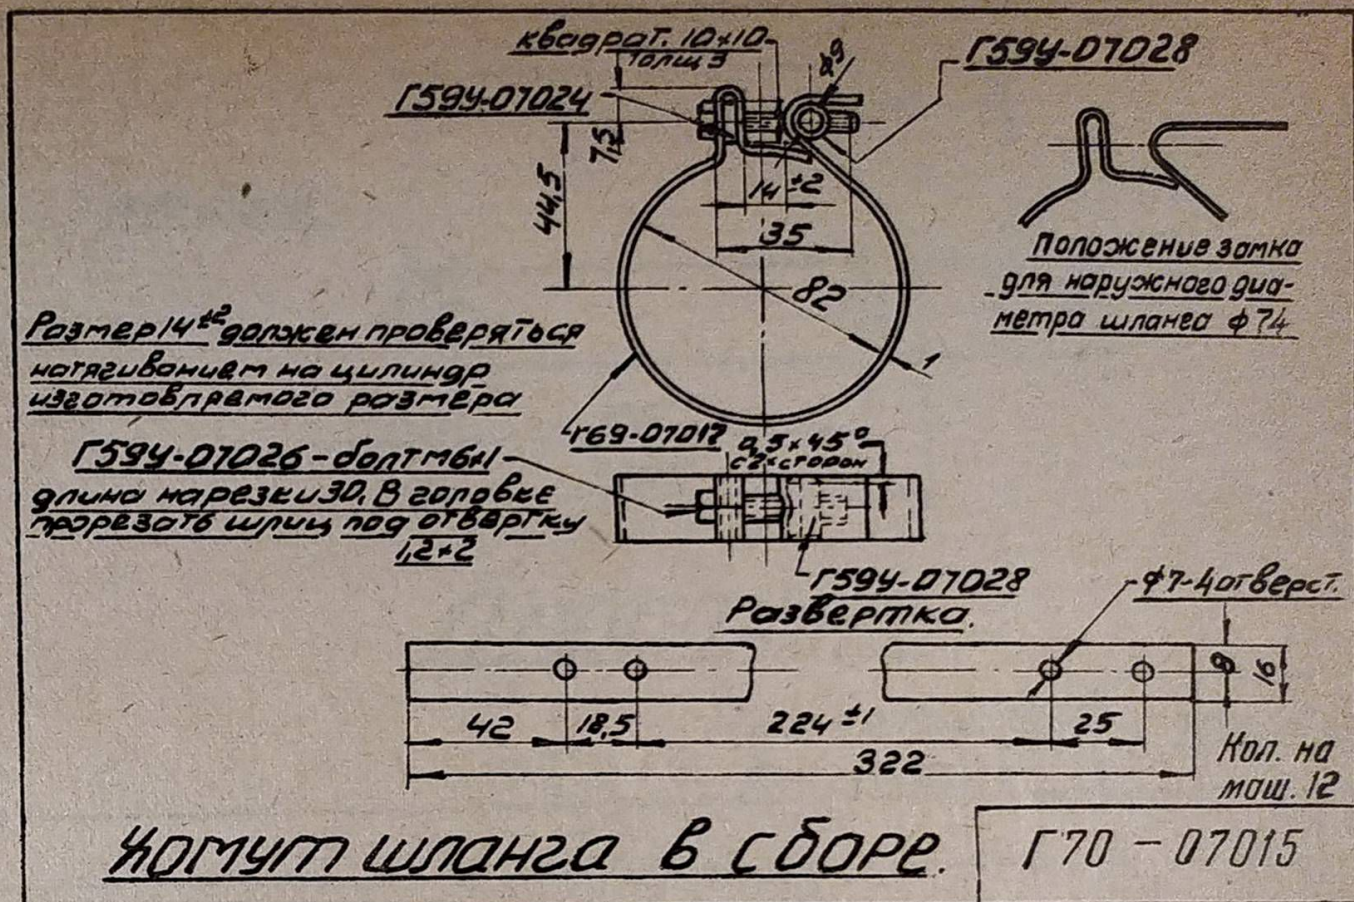 квадрат. 10×10
толщ 3
Г59У-07024
Г59У-07028
7,5
44,5
14 ±2
35
82
1
Положение замка
для наружного диа-
метра шланга ф 74
Размер 14 ±2 должен проверяться
натягиванием на цилиндр
изготовляемого размера
Г69-07017
0,5×45°
с 2х сторон
Г59У-07026-болт м6×1
длина нарезки 30. В головке
прорезать шлиц под отвертку
1,2×2
Г59У-07028
Развертка.
ф7-4 отверст.
42
18,5
224 ±1
25
322
8
16
Кол. на
маш. 12
Хомут шланга в сборе.
Г70-07015